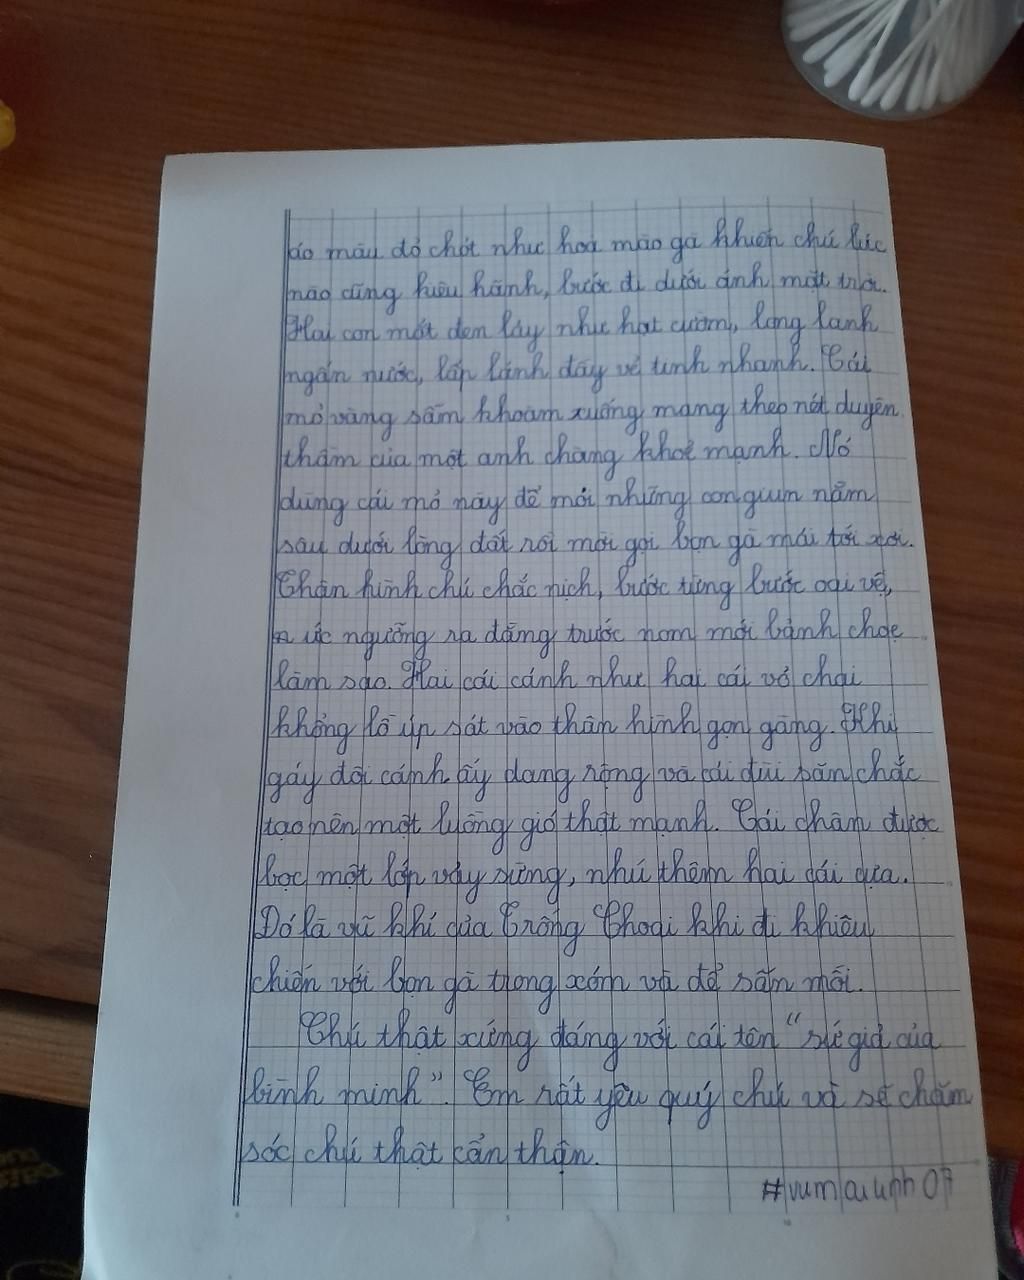 áo màu đỏ chót như hoa mào gà khiến chú lúc
nào cũng kiêu hãnh, bước đi dưới ánh mặt trời.
Hai con mắt đen láy như hạt cườm, long lanh
ngấn nước, lấp lánh đầy vẻ tinh nhanh. Cái
mỏ vàng sẫm khoằm xuống mang theo nét duyên
thầm của một anh chàng khoẻ mạnh. Nó
dùng cái mỏ này để mổi những con giun nằm
sâu dưới lòng đất rồi mời gọi bọn gà mái tới xơi.
Thân hình chú chắc nịch, bước từng bước oai vệ,
ức ngưỡng ra đằng trước nom mới bảnh choẹ
làm sao. Hai cái cánh như hai cái vỏ chai
khổng lồ úp sát vào thân hình gọn gàng. Khi
gáy đôi cánh ấy dang rộng và cái đùi săn chắc
tạo nên một luồng gió thật mạnh. Cái chân được
bọc một lớp vảy sừng, nhú thêm hai cái cựa.
Đó là vũ khí của Trống Choai khi đi khiêu
chiến với bọn gà trong xóm và để săn mồi.
Chú thật xứng đáng với cái tên "sứ giả của
bình minh". Em rất yêu quý chú và sẽ chăm
sóc chú thật cẩn thận.